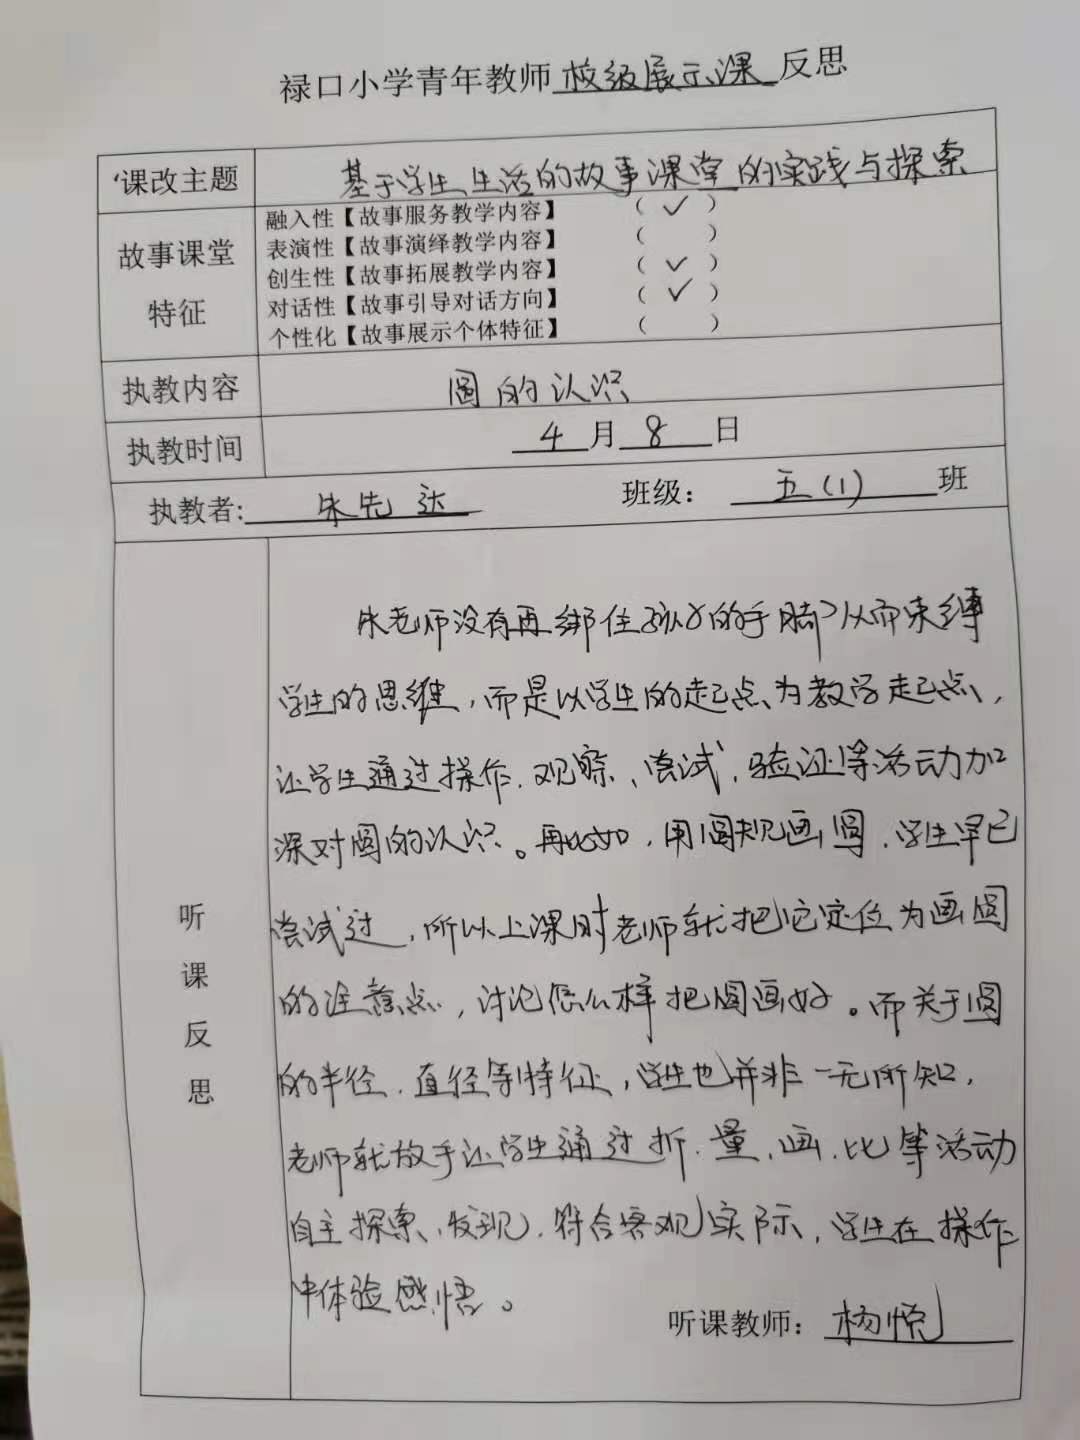 禄口小学青年教师校级展示课反思
课改主题 基于学生生活的故事课堂的实践与探索
故事课堂特征
融入性【故事服务教学内容】 （ ✓ ）
表演性【故事演绎教学内容】 （ ）
创生性【故事拓展教学内容】 （ ✓ ）
对话性【故事引导对话方向】 （ ✓ ）
个性化【故事展示个体特征】 （ ）
执教内容 圆的认识
执教时间 4月8日
执教者：朱先达 班级：五（1）班
听课反思
朱老师没有再绑住孩子的手脚，从而束缚
学生的思维，而是以学生的起点为教学起点，
让学生通过操作、观察、尝试、验证等活动加
深对圆的认识。再比如，用圆规画圆，学生早已
尝试过，所以上课时老师就把它定位为画圆
的注意点，讨论怎么样把圆画好。而关于圆
的半径、直径等特征，学生也并非一无所知，
老师就放手让学生通过折、量、画、比等活动
自主探索、发现，符合客观实际，学生在操作
中体验感悟。
听课教师：杨悦